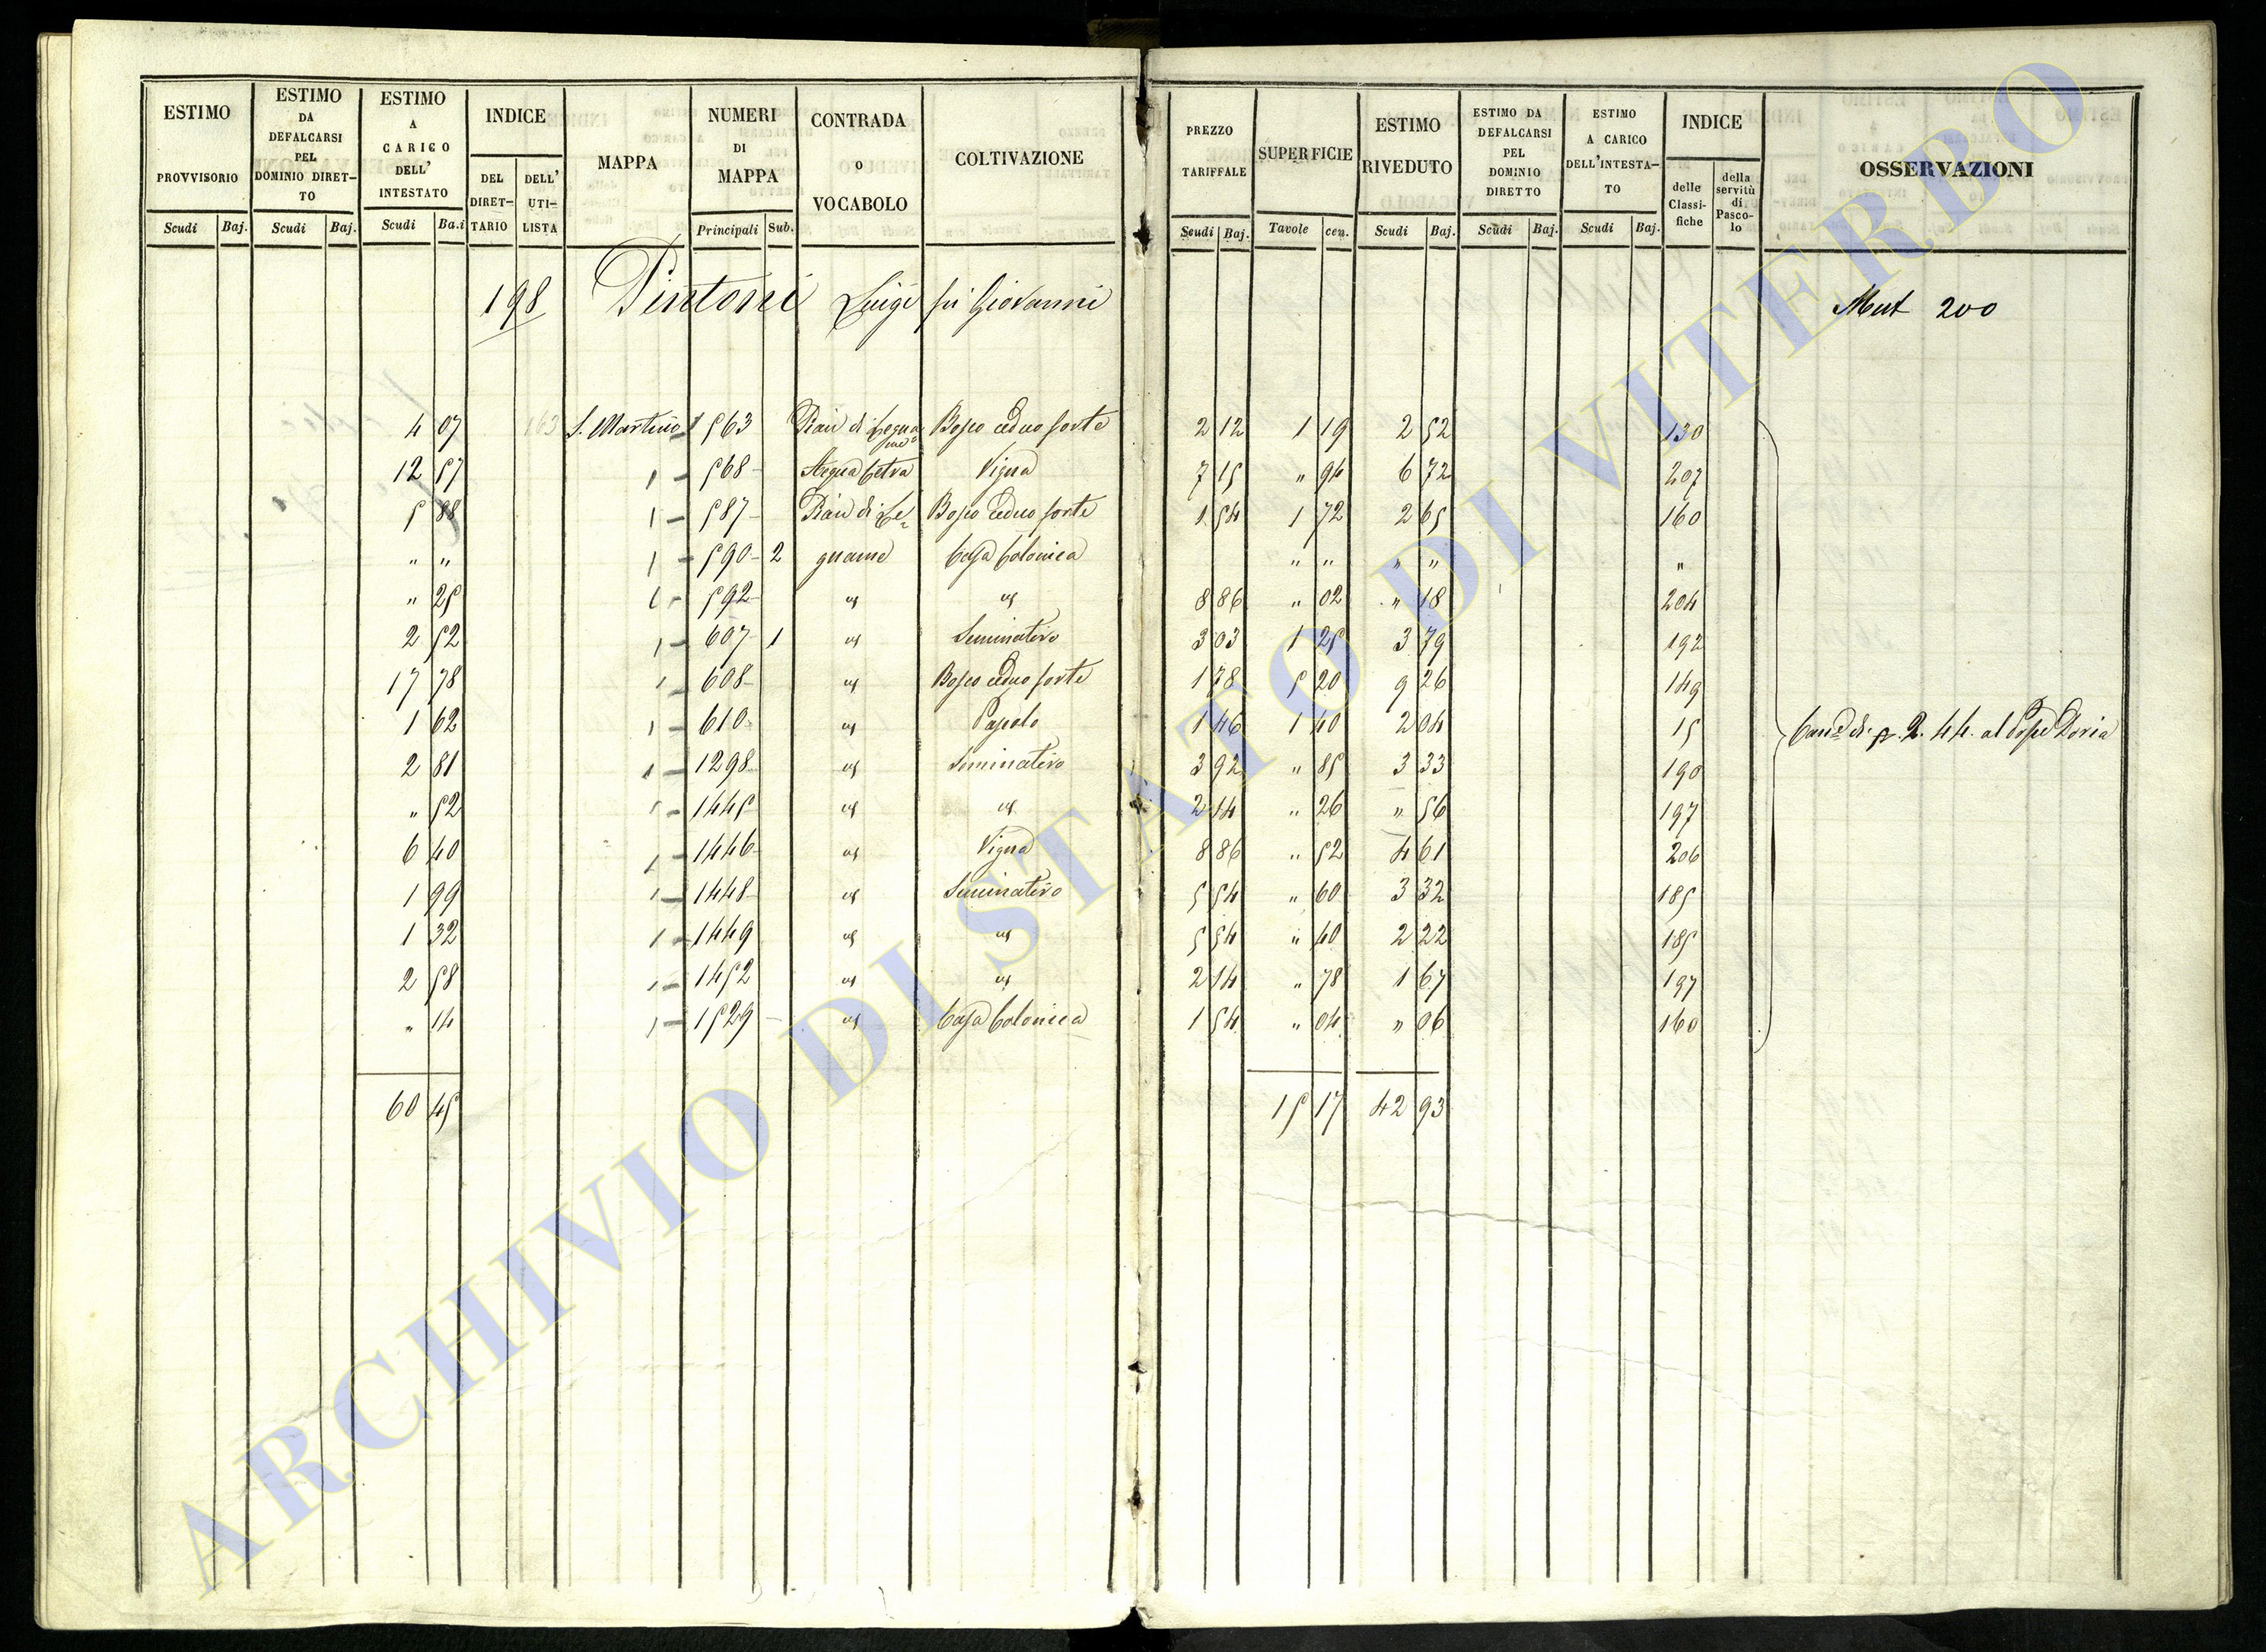 ESTIMO PROVVISORIO Scudi Baj.
ESTIMO DA DEFALCARSI PEL DOMINIO DIRET-TO Scudi Baj.
ESTIMO A CARICO DELL' INTESTATO Scudi Ba.i
INDICE DEL DIRET-TARIO DELL' UTI-LISTA
MAPPA
NUMERI DI MAPPA Principali Sub.
CONTRADA o VOCABOLO
COLTIVAZIONE
PREZZO TARIFFALE Scudi Baj.
SUPERFICIE Tavole cen.
ESTIMO RIVEDUTO Scudi Baj.
ESTIMO DA DEFALCARSI PEL DOMINIO DIRETTO Scudi Baj.
ESTIMO A CARICO DELL'INTESTA-TO Scudi Baj.
INDICE delle Classi-fiche della servitù di Pasco-lo
OSSERVAZIONI
198 Pintoni Luigi fu Giovanni Mut 200
4 07 163 S. Martino 1 563 Pian di Legname Bosco ceduo forte 2 12 1 19 2 52 130
12 57 1 - 568 - Acqua Cetra Vigna 7 15 " 94 6 72 207
5 88 1 - 587 - Pian di Le= Bosco ceduo forte 1 54 1 72 2 65 160
" " 1 - 590 - 2 gname Casa Colonica " " " " "
" 25 1 - 592 - id id 8 86 " 02 " 18 204
2 52 1 - 607 - 1 id Seminativo 3 03 1 25 3 79 192
17 78 1 - 608 - id Bosco ceduo forte 1 78 5 20 9 26 149
1 62 1 - 610 - id Pascolo 1 46 1 40 2 04 15
2 81 1 - 1298 id Seminativo 3 92 " 85 3 33 190
" 52 1 - 1445 id id 2 14 " 26 " 56 197
6 40 1 - 1446 - id Vigna 8 86 " 52 4 61 206
1 99 1 - 1448 - id Seminativo 5 54 " 60 3 32 185
1 32 1 - 1449 id id 5 54 " 40 2 22 185
2 58 1 - 1452 id id 2 14 " 78 1 67 197
" 14 1 - 1529 - id Casa Colonica 1 54 " 04 " 06 160
di 2. 44. al Doria
60 45 15 17 42 93
ARCHIVIO DI STATO DI VITERBO